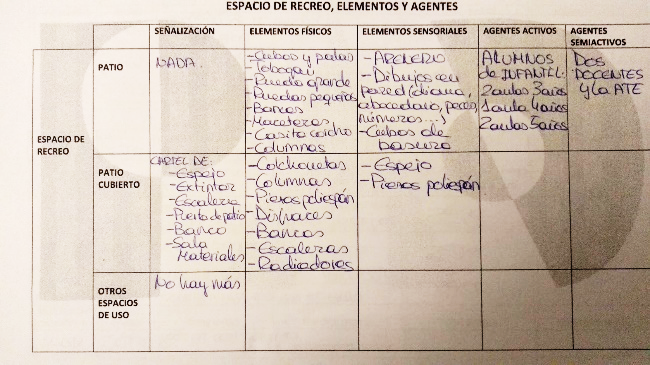 ESPACIO DE RECREO, ELEMENTOS Y AGENTES
SEÑALIZACIÓN ELEMENTOS FÍSICOS ELEMENTOS SENSORIALES AGENTES ACTIVOS AGENTES SEMIACTIVOS
ESPACIO DE RECREO
PATIO
NADA.
-Cubos y palas
Tobogán
-Rueda grande
-Ruedas pequeñas
-Bancos
-Maceteros,
-Casita corcho
-Columnas
-ARENERO
-Dibujos en
pared (diana,
abecedario, peces,
números...)
-Cubos de
basura
ALUMNOS
de INFANTIL:
2 aulas 3 años
1 aula 4 años
2 aulas 5 años
DOS
DOCENTES
y la ATE
PATIO CUBIERTO
CARTEL DE:
-Espejo
-Extintor
-Escalera
-Puerta de patio
-Banco
-Sala
Materiales
-Colchonetas
-Columnas
-Pieros poliespán
-Disfraces
-Bancos
-Escaleras
-Radiadores
-Espejo
-Pieros poliespán
OTROS ESPACIOS DE USO
No hay más